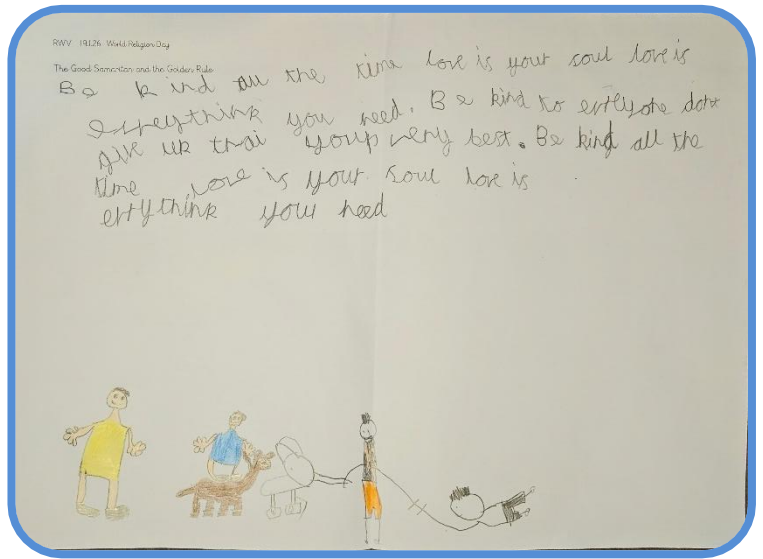 RWV 19.1.26 World Religion Day
The Good Samaritan and the Golden Rule
Be kind all the time love is your soul love is
evreythink you need. Be kind to erlyone dont
give up trai your very best. Be kind all the
time love is your soul love is
errythink your need